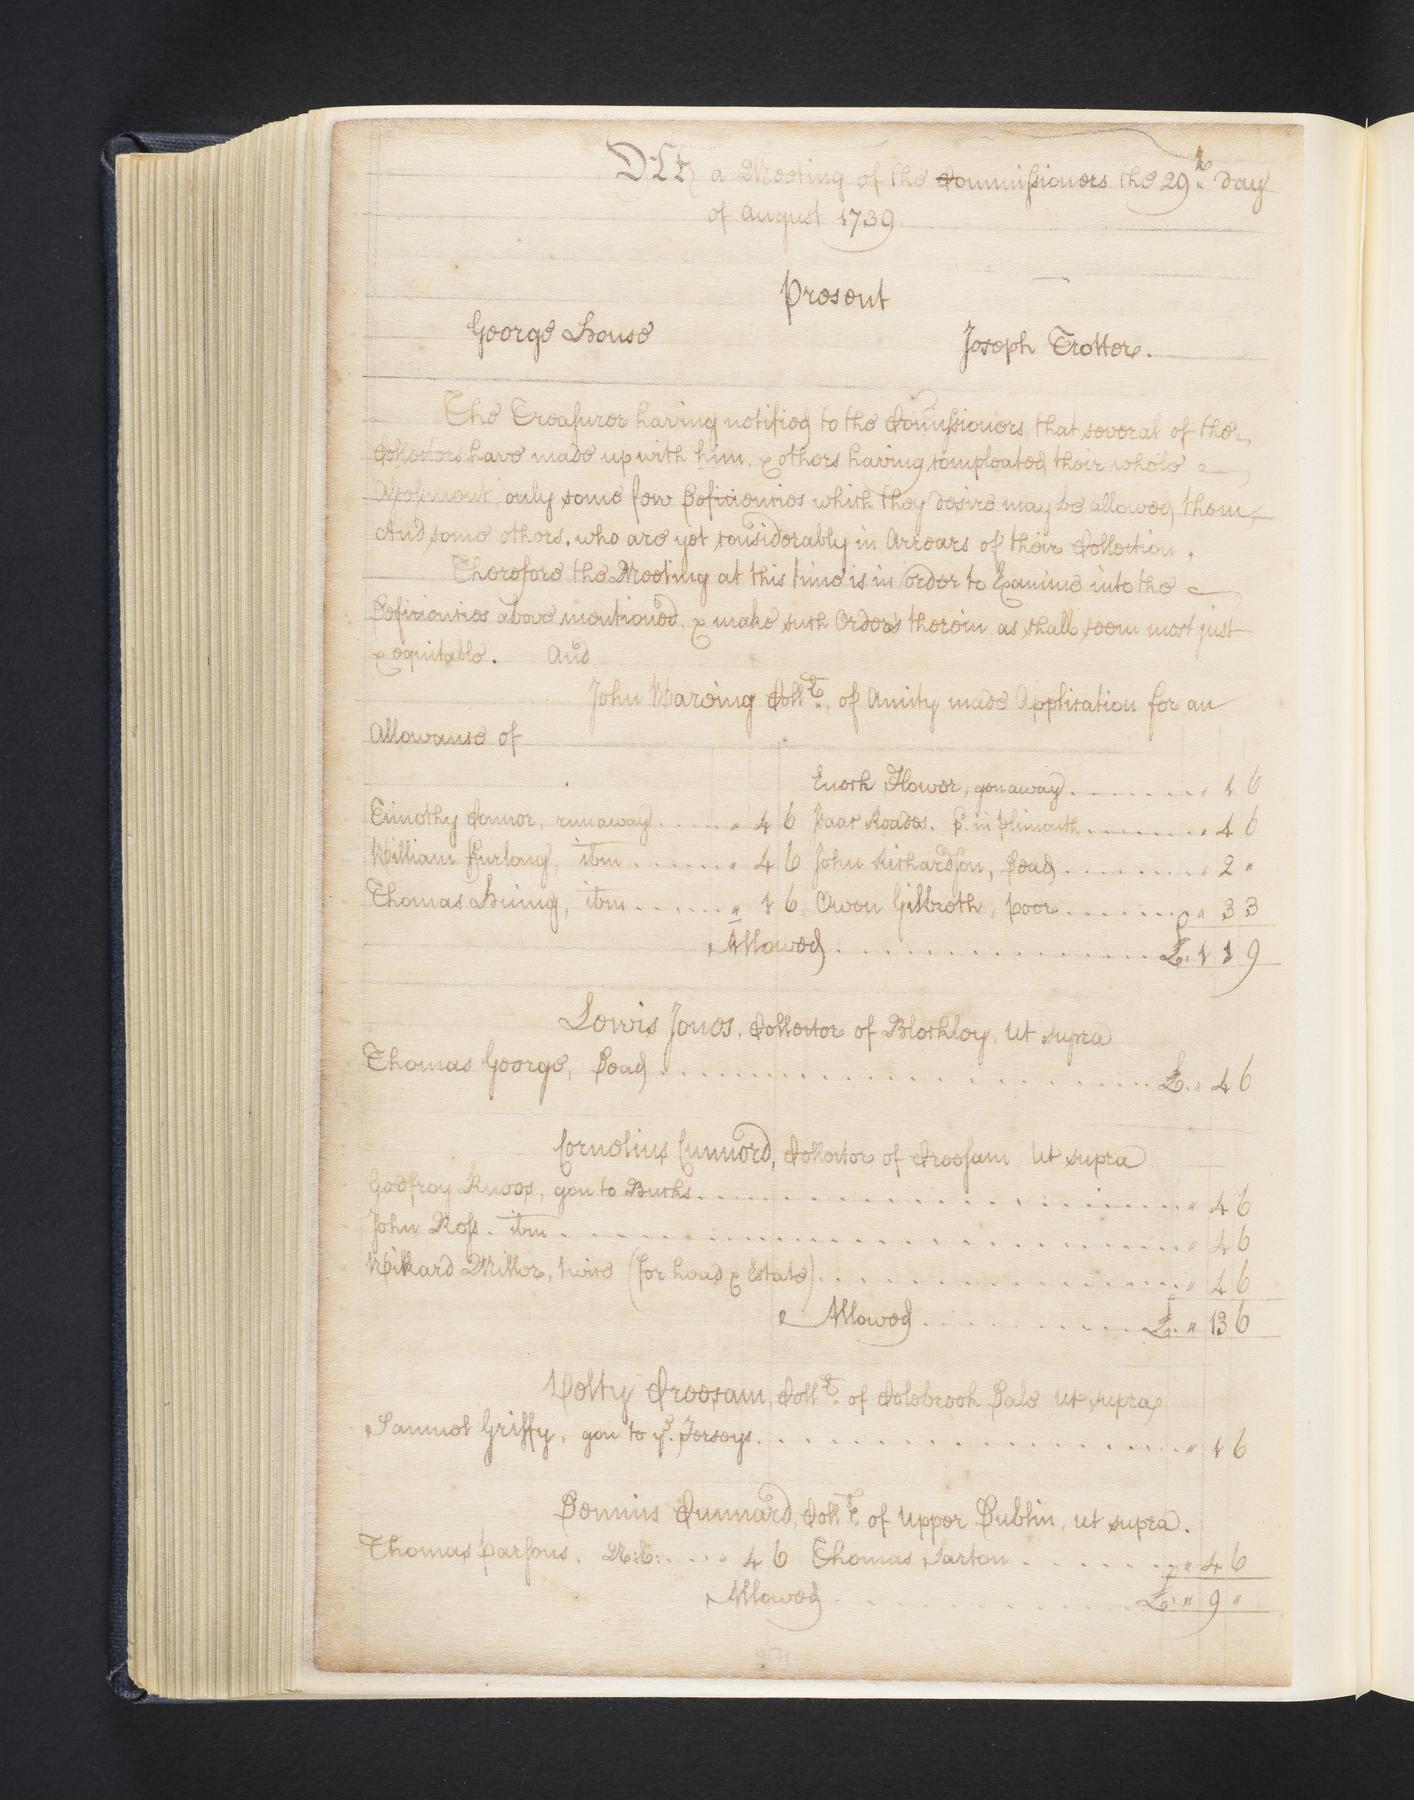 At a Meeting of the Commissioners the 29th Day
of August 1739.
Present
George House
Joseph Trotter.
The Treasurer having notified to the Comissioners, that several of the
Collectors have made up with him, & others having compleated their whole
Assessment only some few Deficiencies which they desire may be allowed them,
And some others, who are yet considerably in Arrears of their Collection.
Therefore the Meeting at this time is in order to Examine into the
Deficiencies above mentioned, & make such Orders therein as shall seem most just
& equitable. And
John Wareing Collr. of Amity made Application for an
Allowance of
Enoch Flower, gon away ........ " 1 6
Timothy Connor, runaway ..... " 4 6 Isaac Roades. pd. in Plimouth ........ " 4 6
William Furlong, itm ....... " 4 6 John Richardson, Dead ........ " 2 "
Thomas Huing, itm ....... " 1 6 Owen Gilbreth, poor ....... " 3 3
Allowed ............ £. 1 1 9
Lewis Jones. Collector of Blockley, Ut supra
Thomas George, Dead ............ £. " 4 6
Cornelius Cunnord, Collector of Creesam Ut supra
Godfrey Knoos, gon to Bucks ............ " 4 6
John Ross. itm ............ " 4 6
Wikard Miller, twice (for head & Estate) ............ " 4 6
Allowed ............ £. " 13 6
Velty Creesam, Collr. of Colebrook Dale Ut supra
Samuel Griffy, gon to ye. Jerseys ............ " 1 6
Dennis Cunnard, Collr. of Upper Dublin, ut supra.
Thomas Parsons. N:E: .... " 4 6 Thomas Sarton ........ " 4 6
Allowed ............ £. " 9 "